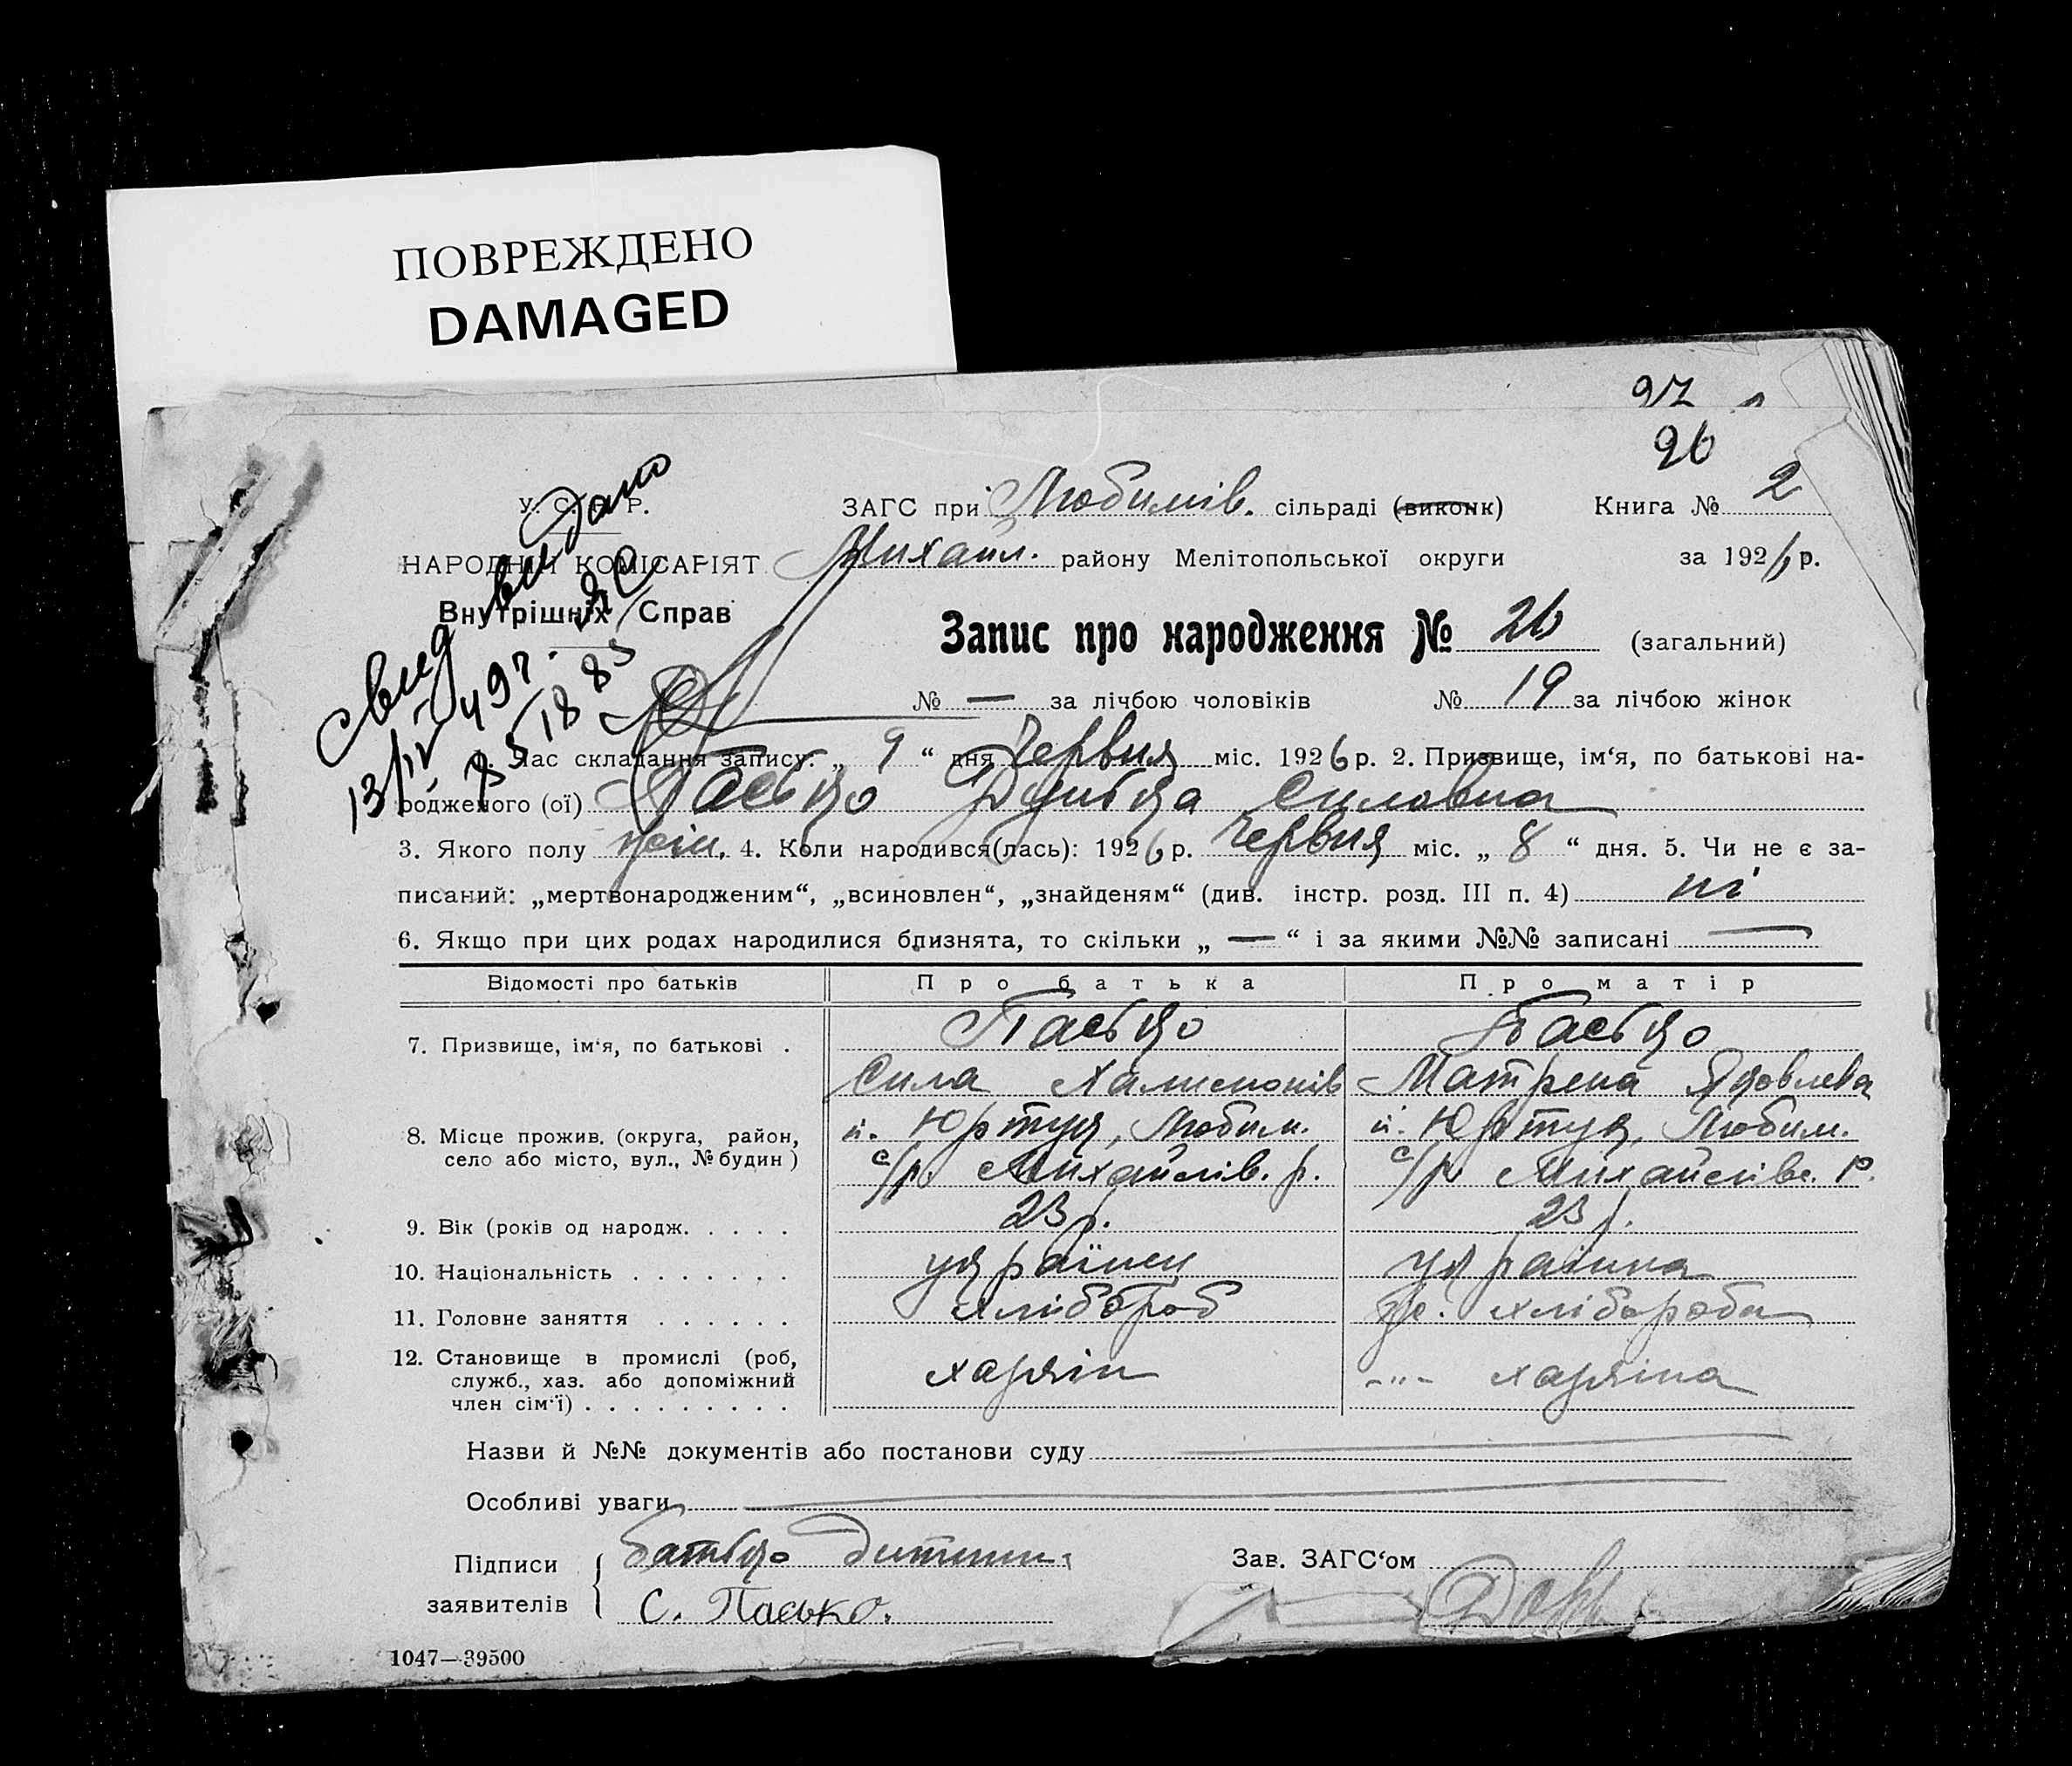 ПОВРЕЖДЕНО
DAMAGED
97
26
У. С. Р. Р.
ЗАГС при Любимів. сільраді (виконк)
Книга № 2
НАРОДНІЙ КОМІСАРІЯТ
Михайл. району Мелітопольської округи
за 1926 р.
Внутрішніх Справ
Запис про народження № 26 (загальний)
№ — за лічбою чоловіків № 19 за лічбою жінок
свид видано
13/IV 497.
1. Час складання запису: „ 9 “ дня Червня міс. 1926 р. 2. Призвище, ім'я, по батькові на-
родженого (ої) Пасько Силовна
3. Якого полу жін. 4. Коли народився(лась): 1926 р. Червня міс. „ 8 “ дня. 5. Чи не є за-
писаний: „мертвонародженим“, „всиновлен“, „знайденям“ (див. інстр. розд. III п. 4) ні
6. Якщо при цих родах народилися близнята, то скільки „ — “ і за якими №№ записані —
Відомості про батьків Про батька Про матір
7. Призвище, ім'я, по батькові . Пасько Пасько
Сила Матрена Яковлева
8. Місце прожив. (округа, район, село або місто, вул., № будин) к. Юртук, Любим. к. Юртук, Любим.
с/р. Михайлів. р. с/р Михайлівс. р.
9. Вік (років од народж. . . . . 23 р. 23 р.
10. Національність . . . . . . . українец українка
11. Головне заняття . . . . . . хлібороб хлібороба
12. Становище в промислі (роб, служб., хаз. або допоміжний член сім'ї) . . . . . . . . . хазяїн -"- хазяїна
Назви й №№ документів або постанови суду
Особливі уваги
Підписи заявителів { батько дитини
С. Пасько.
Зав. ЗАГС'ом
1047—39500